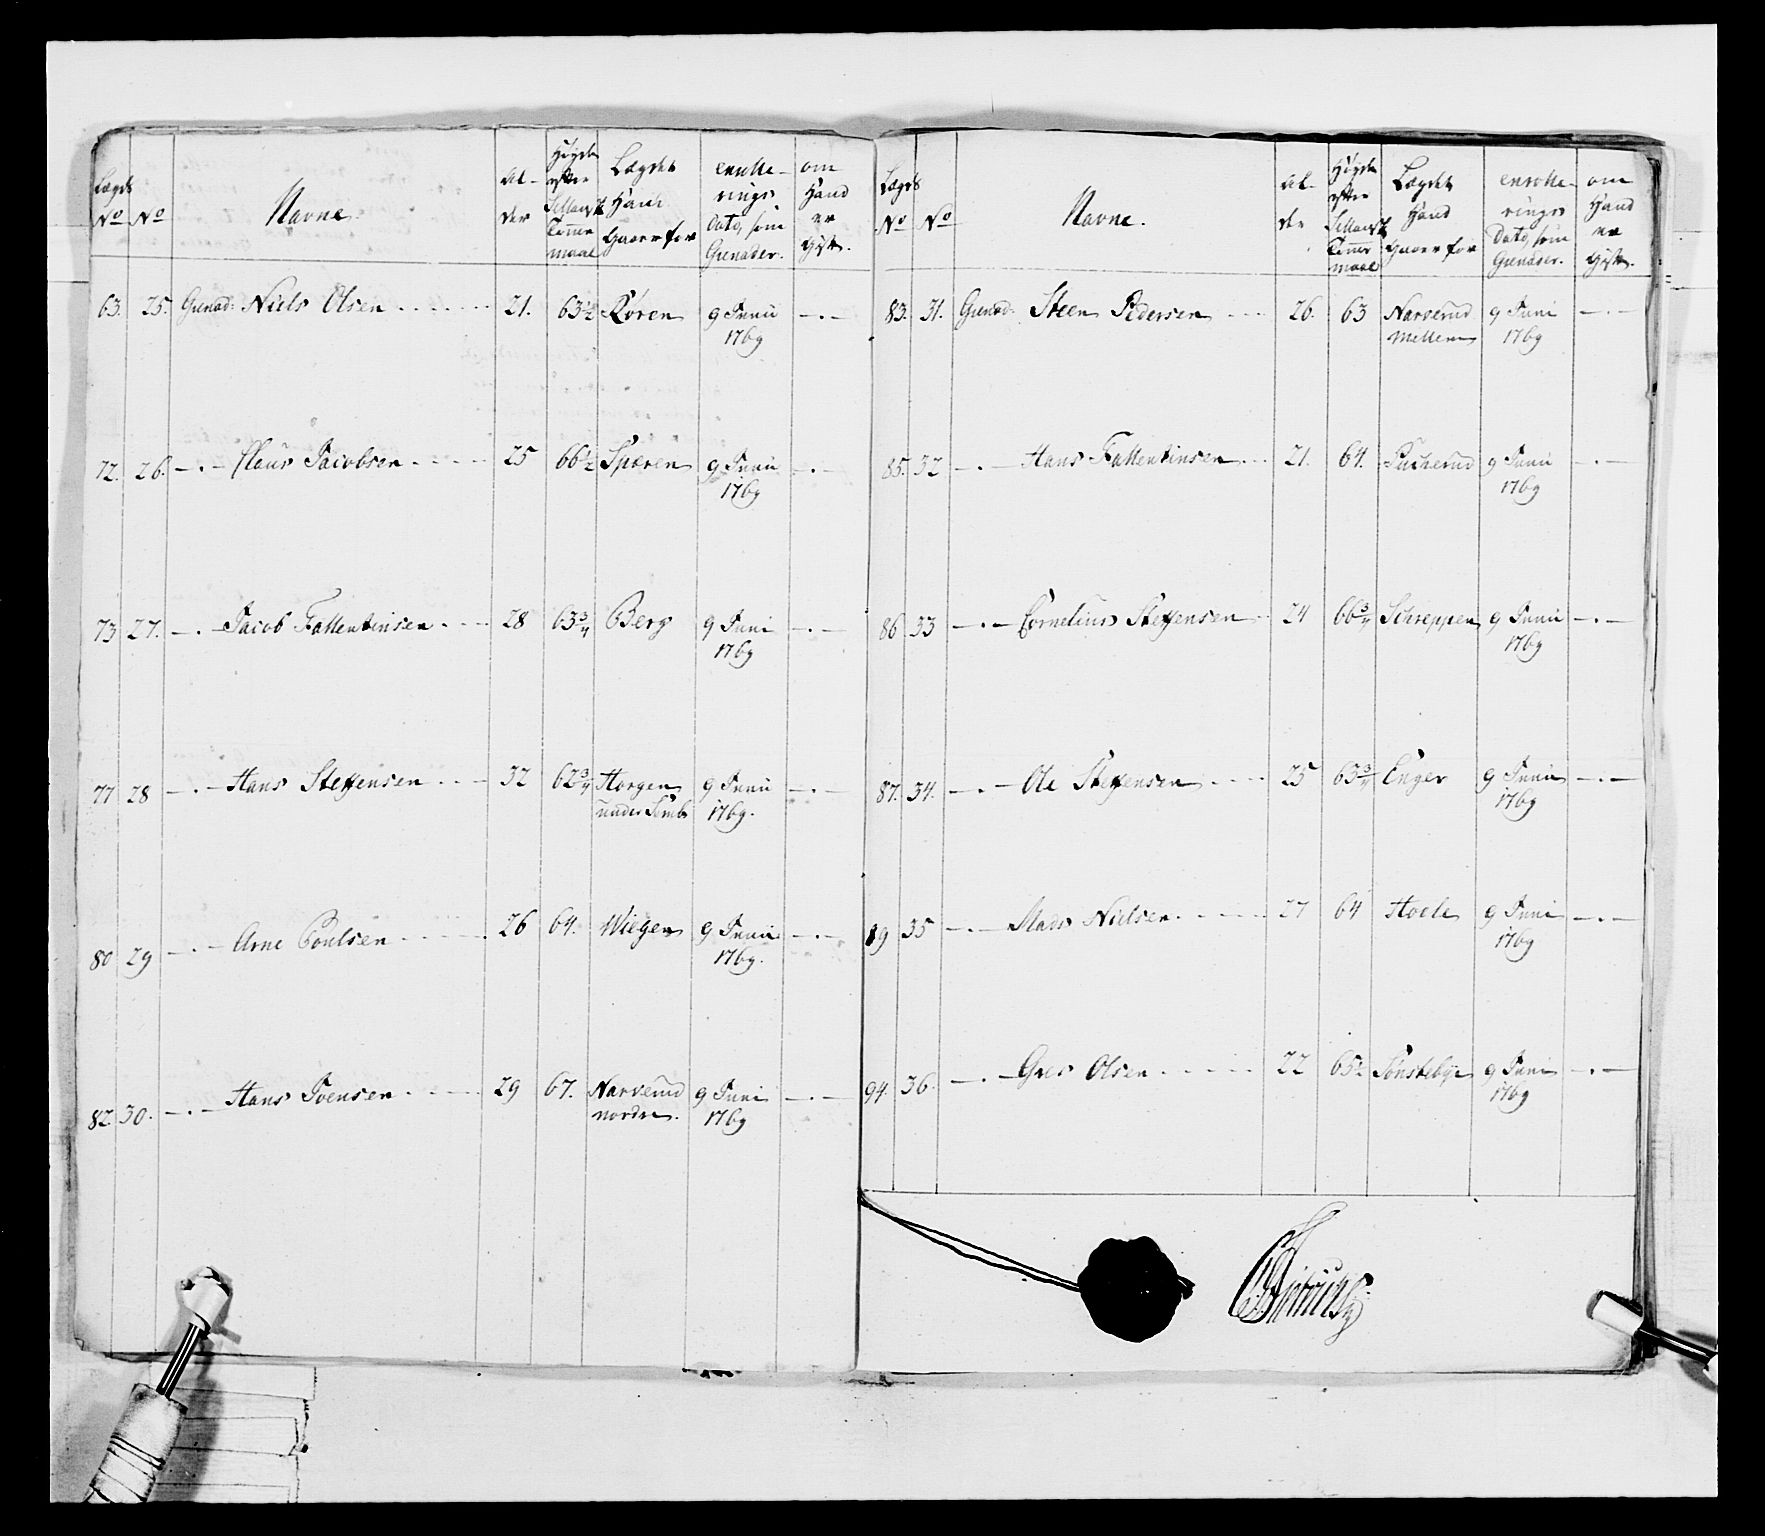 Lægds No | No | Navne | Al-der | Høyde efter Sellansk Tomme maal | Lægdet Hand Haver for | enrolle-rings Dato, som Grenader. | om Hand er Gift.
63. | 25. | Grenad: Niels Olsen | 21. | 63½ | Røren | 9 Junii 1769 | —.—
72. | 26. | —.— Claus Jacobsen | 25 | 66½ | Speren | 9 Junii 1769 | —.—
73 | 27. | —.— Jacob Fallentinsen | 28 | 63¾ | Berg | 9 Juni 1769 | —.—
77 | 28 | —.— Hans Steffensen | 32 | 62¾ | Horgen under | 9 Junii 1769. | —.—
80 | 29 | —.— Arne Poulsen | 26 | 64. | Wiegen | 9 Junii 1769. | —.—
82. | 30. | —.— Hans Joensen | 29 | 67. | Narverud nordre. | 9 Juni 1769 | —.—
Lægds No | No | Navne. | Al-der | Høyde efter Sellansk Tomme maal | Lægdet Hand Haver for | enrolle-rings Dato, som Grenader. | om Hand er Gift.
83. | 31. | Grenad: Steen Pedersen | 26. | 63 | Narverud mellem | 9 Juni 1769 | —.—
85. | 32 | —.— Hans Fallentinsen | 21. | 64. | Pucherud | 9 Junii 1769 | —.—
86 | 33 | —.— Cornelius Steffensen | 24 | 66¾ | Schreppen | 9 Junii 1769 | —.—
87. | 34. | —.— Ole Steffensen | 25 | 63¾ | Enger | 9 Junii 1769 | —.—
89 | 35 | —.— Mads Nielsen | 27 | 64 | Hoele | 9 Juni 1769 | —.—
94. | 36. | —.— Gres Olsen | 22 | 65½ | Sønstebye | 9 Juni 1769 | —.—